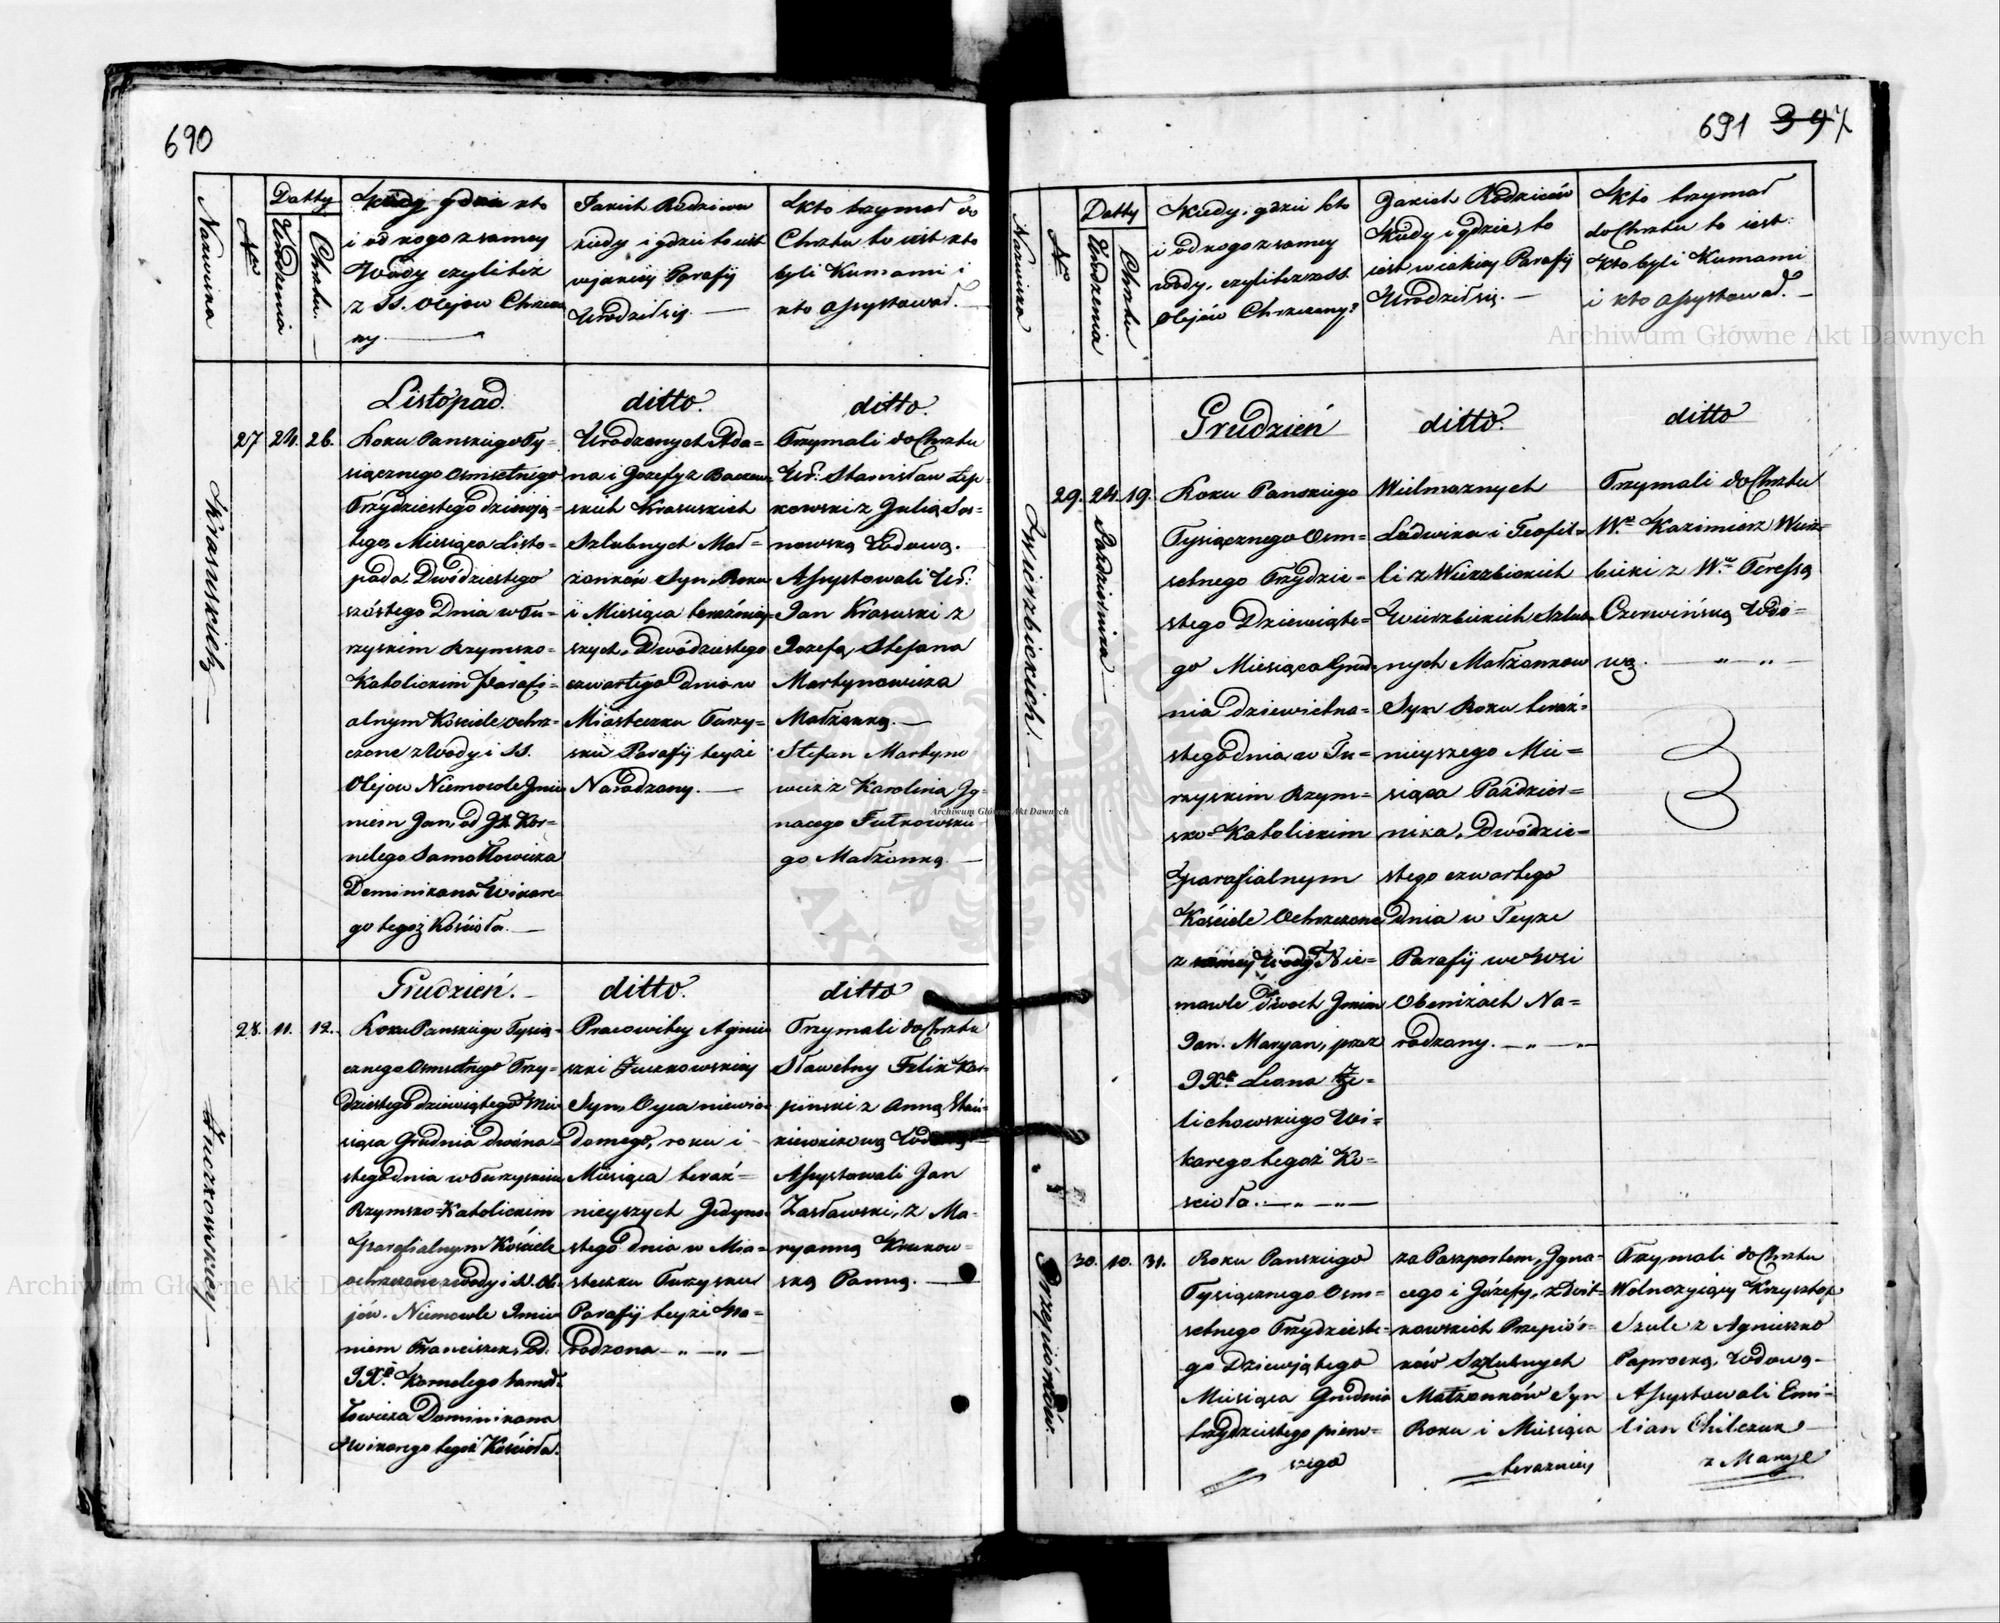 690
Nazwiska
Nr
Datty
Urodzenia
Chrztu.
Kiedy gdzie kto
i od kogo z samey
Wody czyli też
z SS. Olejow Chrzczo
ny
Jakich Rodziców
kiedy i gdzie to iest
w jakiéy Parafij
Urodził się.
Kto trzymał do
Chrztu to iest kto
byli Kumami i
kto assystował.
Krasuskich
27
24.
26.
Listopad.
Roku Panskiego Ty=
siącznego Osmsetnego
Trzydziestego dziewią=
tego Miesiąca Listo=
pada Dwódziestego
szóstego Dnia w Tu=
rzyskim Rzymsko=
Katolickim Parafi=
alnym Kościele ochrz=
czone z Wody i SS.
Olejow Niemowle Jmie
niem Jan, od JX Kor=
nelego Samotłowicza
Dominikana Wikare=
go tegoż Kościoła.
ditto.
Urodzonych Ada=
ma i Jozefy z
Krasuskich
Szlubnych Mał=
żonków Syn, Roku
i Miesiąca teraźniey=
szych, Dwódziestego
czwartego dnia w
Miasteczku Turzy=
sku Parafij teyże
Narodzony.
ditto.
Trzymali do Chrztu
Ur: Stanisław Łep=
kowski z Julią Sos=
nowską Wdową.
Assystowali Ur:
Jan Krasuski z
Jozefą, Stefana
Martynowicza
Małżonką.
Stefan Martyno
wicz z Karoliną Jg=
nacego Futkowskie=
go Małżonką.
Zuczkowskiey
28.
11.
12.
Grudzień.
Roku Panskiego Tysią=
cznego Osmsetnego Trzy=
dziestego dziewiątego Mie
siąca Grudnia dwóna=
stego dnia w Turzyskim
Rzymsko=Katolickim
Parafialnym Kościele
ochrzczone z wody i SS. Ole=
jów. Niemowle Jmie
niem Franciszek, od
JXa Kornelego Samot=
łowicza Dominikana
Wikarego tegoż Kościoła.
ditto.
Pracowitey Agnie
szki Zuczkowskiey
Syn, Oyca niewia=
domego, roku i
Miesiąca teraź=
nieyszych Jedyna=
stego dnia w Mia=
steczku Turzysku
Parafij teyże Na=
rodzona
ditto
Trzymali do Chrztu
Sławetny Felix Kar=
pinski z Anną Stań=
kiewiczową Wdową
Assystowali Jan
Zasławski, z Ma=
ryanną Krukow=
ską Panną.
691 397
Nazwiska
Nr
Datty
Urodzenia
Chrztu
Kiedy, gdzie kto
i od kogo z samey
wody, czyli też z SS
Olejów Chrzczony?
Jakich Rodziców
Kiedy i gdzie to
iest w iakiey Parafij
Urodził się.
Kto trzymał
do Chrztu to iest:
Kto byli Kumami
i kto assystował.
Wierzbickich
29.
24. Pazdziernika
19.
Grudzień
Roku Panskiego
Tysiącznego Osm=
setnego Trzydzie=
stego Dziewiąte=
go Miesiąca Grud=
nia dziewietna=
stego dnia w Tu=
rzyskim Rzym=
sko=Katolickim
Parafialnym
Kościele Ochrzczone
z samey Wody Nie=
mowle Dwoch Jmion
Jan. Maryan, przez
JXa Leona Że=
lichowskiego Wi=
karego tegoż Ko=
scioła.
ditto.
Wielmoznych
Ludwika i Teofi=
li z Wierzbickich
Wierzbickich Szlub=
nych Małżonkow
Syn Roku teraź=
nieyszego Mie=
siąca Paździer=
nika, Dwódzie=
stego czwartego
dnia w Teyze
Parafij we Wsi
Obeniżach Na=
rodzony.
ditto
Trzymali do Chrztu
Wny Kazimierz Wierz=
bicki z Wną Teressą
Czerwińską Wdo=
wą.
Przepiórków.
30.
10.
31.
Roku Panskiego
Tysiącznego Osm=
setnego Trzydzieste=
go Dziewiątego
Miesiąca Grudnia
trzydziestego pierw=
szego
za Paszportem, Jgna=
cego i Józefy, z Dwit=
kowskich Przepiór=
ków Szlubnych
Małżonków Syn
Roku i Miesiąca
terazniey
Trzymali do Chrztu
Wolnozyiący Krzysztof
Szulc z Agnieszko
Paprocką, Wdową.
Assystowali Emi=
lian Chilczuk
z Marye
Archiwum Główne Akt Dawnych
Archiwum Główne Akt Dawnych
Archiwum Główne Akt Dawnych